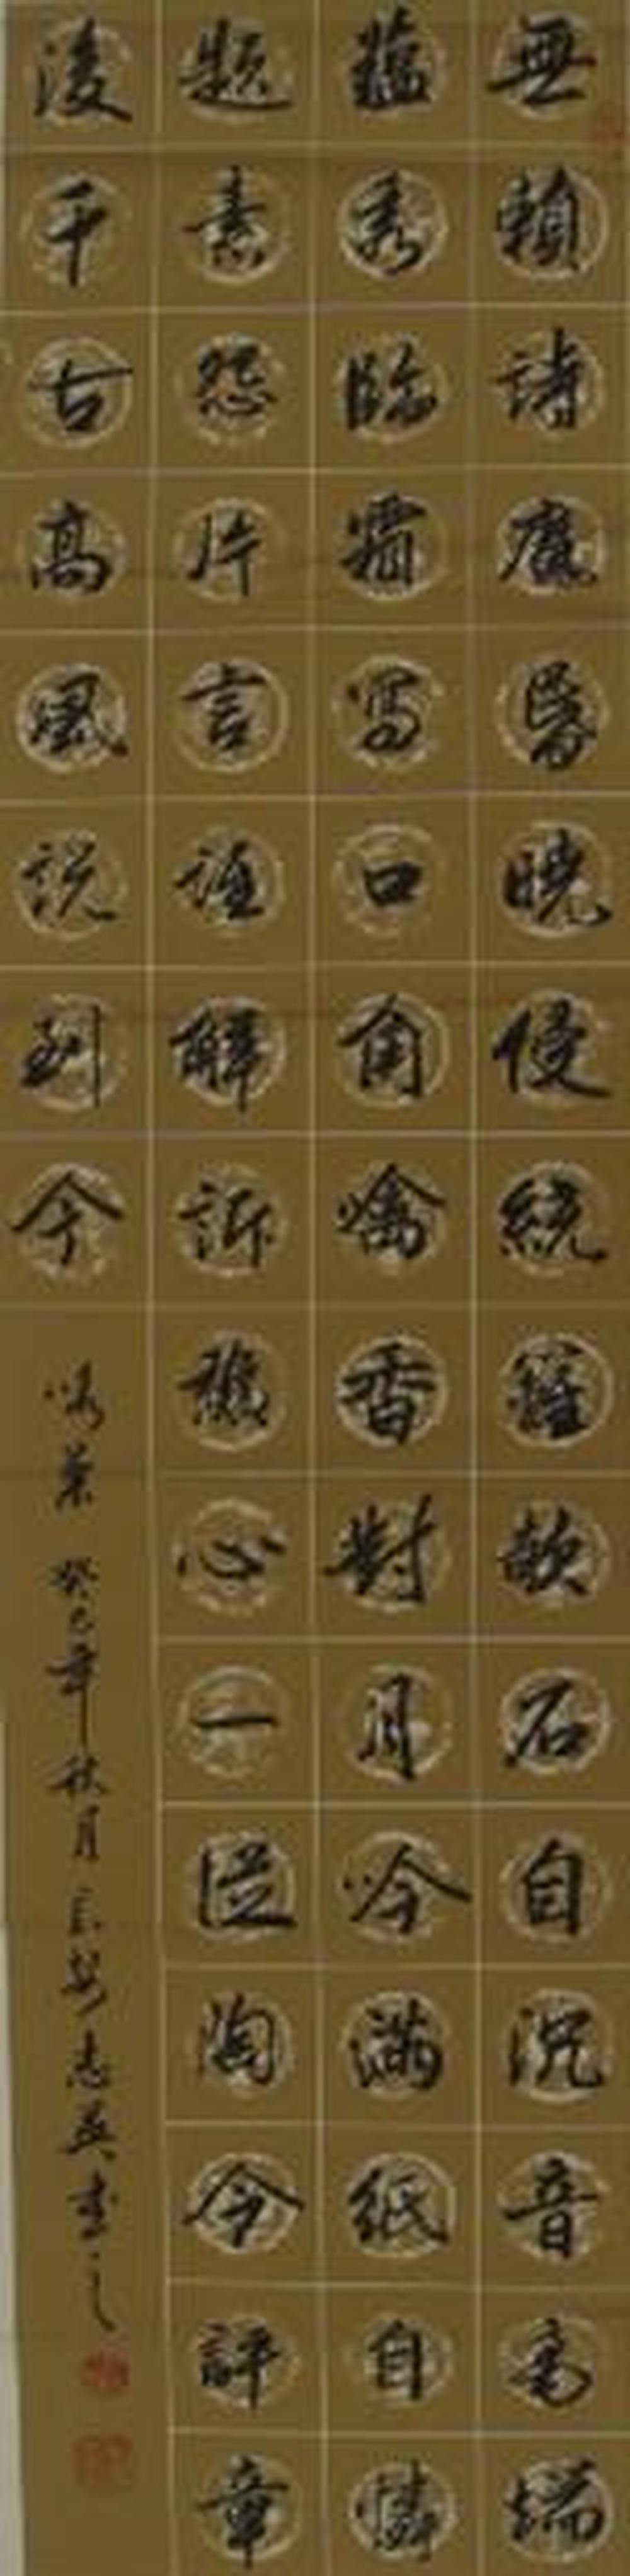 無賴詩魔昏曉侵繞籬欹石自沉音毫端
蘊秀臨霜寫口角噙香對月吟滿紙自憐
題素怨片言誰解訴秋心一從陶令評章
後千古高風說到今
咏菊 癸巳年秋月 志英書之